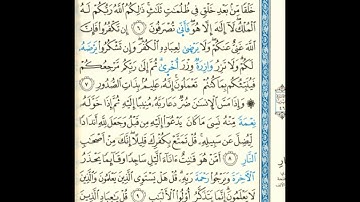 خَلْقًا مِّنۢ بَعْدِ خَلْقٍ فِى ظُلُمَٰتٍ ثَلَٰثٍ ذَٰلِكُمُ ٱللَّهُ رَبُّكُمْ لَهُ
ٱلْمُلْكُ لَآ إِلَٰهَ إِلَّا هُوَ فَأَنَّىٰ تُصْرَفُونَ ٦ إِن تَكْفُرُوا۟ فَإِنَّ
ٱللَّهَ غَنِىٌّ عَنكُمْ وَلَا يَرْضَىٰ لِعِبَادِهِ ٱلْكُفْرَ وَإِن تَشْكُرُوا۟ يَرْضَهُ
لَكُمْ وَلَا تَزِرُ وَازِرَةٌ وِزْرَ أُخْرَىٰ ثُمَّ إِلَىٰ رَبِّكُم مَّرْجِعُكُمْ
فَيُنَبِّئُكُم بِمَا كُنتُمْ تَعْمَلُونَ إِنَّهُۥ عَلِيمٌۢ بِذَاتِ ٱلصُّدُورِ ٧
وَإِذَا مَسَّ ٱلْإِنسَٰنَ ضُرٌّ دَعَا رَبَّهُۥ مُنِيبًا إِلَيْهِ ثُمَّ إِذَا خَوَّلَهُۥ
نِعْمَةً مِّنْهُ نَسِىَ مَا كَانَ يَدْعُوٓا۟ إِلَيْهِ مِن قَبْلُ وَجَعَلَ لِلَّهِ أَندَادًا
لِّيُضِلَّ عَن سَبِيلِهِۦ قُلْ تَمَتَّعْ بِكُفْرِكَ قَلِيلًا إِنَّكَ مِنْ أَصْحَٰبِ
ٱلنَّارِ ٨ أَمَّنْ هُوَ قَٰنِتٌ ءَانَآءَ ٱلَّيْلِ سَاجِدًا وَقَآئِمًا يَحْذَرُ
ٱلْءَاخِرَةَ وَيَرْجُوا۟ رَحْمَةَ رَبِّهِۦ قُلْ هَلْ يَسْتَوِى ٱلَّذِينَ يَعْلَمُونَ وَٱلَّذِينَ
لَا يَعْلَمُونَ إِنَّمَا يَتَذَكَّرُ أُو۟لُوا۟ ٱلْأَلْبَٰبِ ٩ قُلْ يَٰعِبَادِ ٱلَّذِينَ